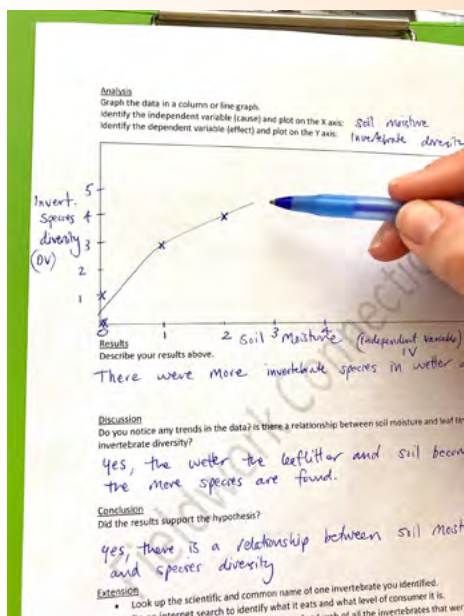 Analysis
Graph the data in a column or line graph.
Identify the independent variable (cause) and plot on the X axis: Soil moisture
Identify the dependent variable (effect) and plot on the Y axis: Invertebrate diversity
Invert.
Species
diversity
(DV)
5
4
3
2
1
0
1
2 Soil 3 Moisture 4 (independent variable)
IV
Results
Describe your results above.
There were more invertebrate species in wetter
Discussion
Do you notice any trends in the data? Is there a relationship between soil moisture and leaf
invertebrate diversity?
Yes, the wetter the leaflitter and soil
the more species are found.
Conclusion
Did the results support the hypothesis?
Yes, there is a relationship between soil
and species diversity
Extension
• Look up the scientific and common name of one invertebrate you identified.
internet search to identify what it eats and what level of consumer it is.
of all the invertebrates that
Fieldwork